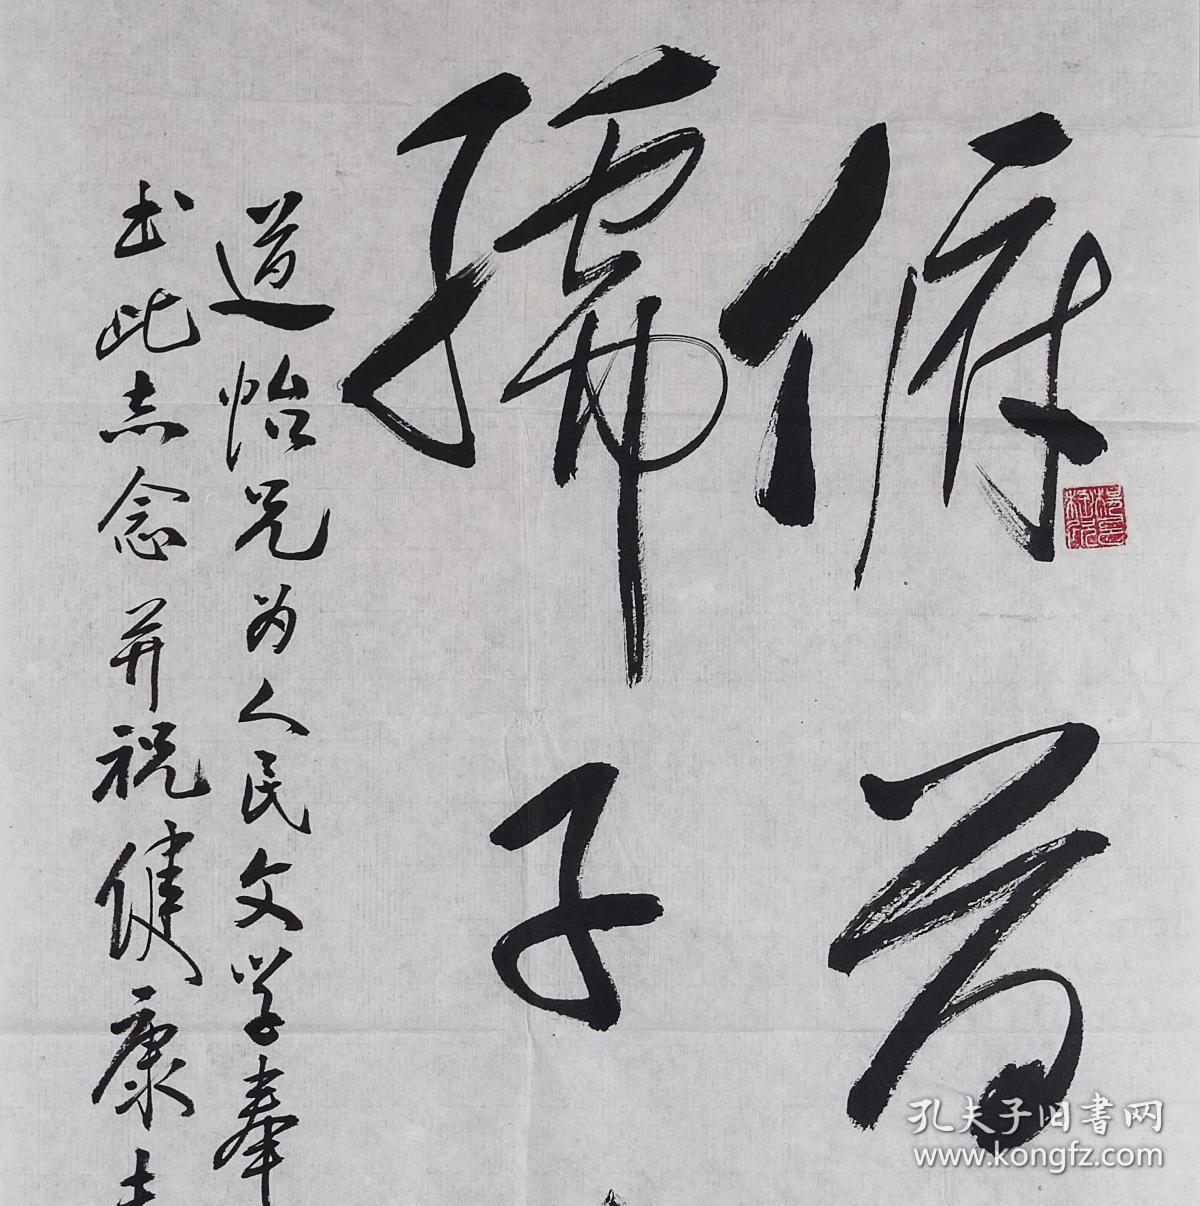 俯首
孺子
道怡兄为人民文学奉
书此志念并祝健康长
孔夫子旧书网
www.kongfz.com